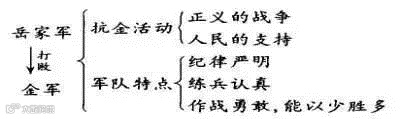 岳家军
打败
金军
抗金活动
正义的战争
人民的支持
军队特点
纪律严明
练兵认真
作战勇敢,能以少胜多